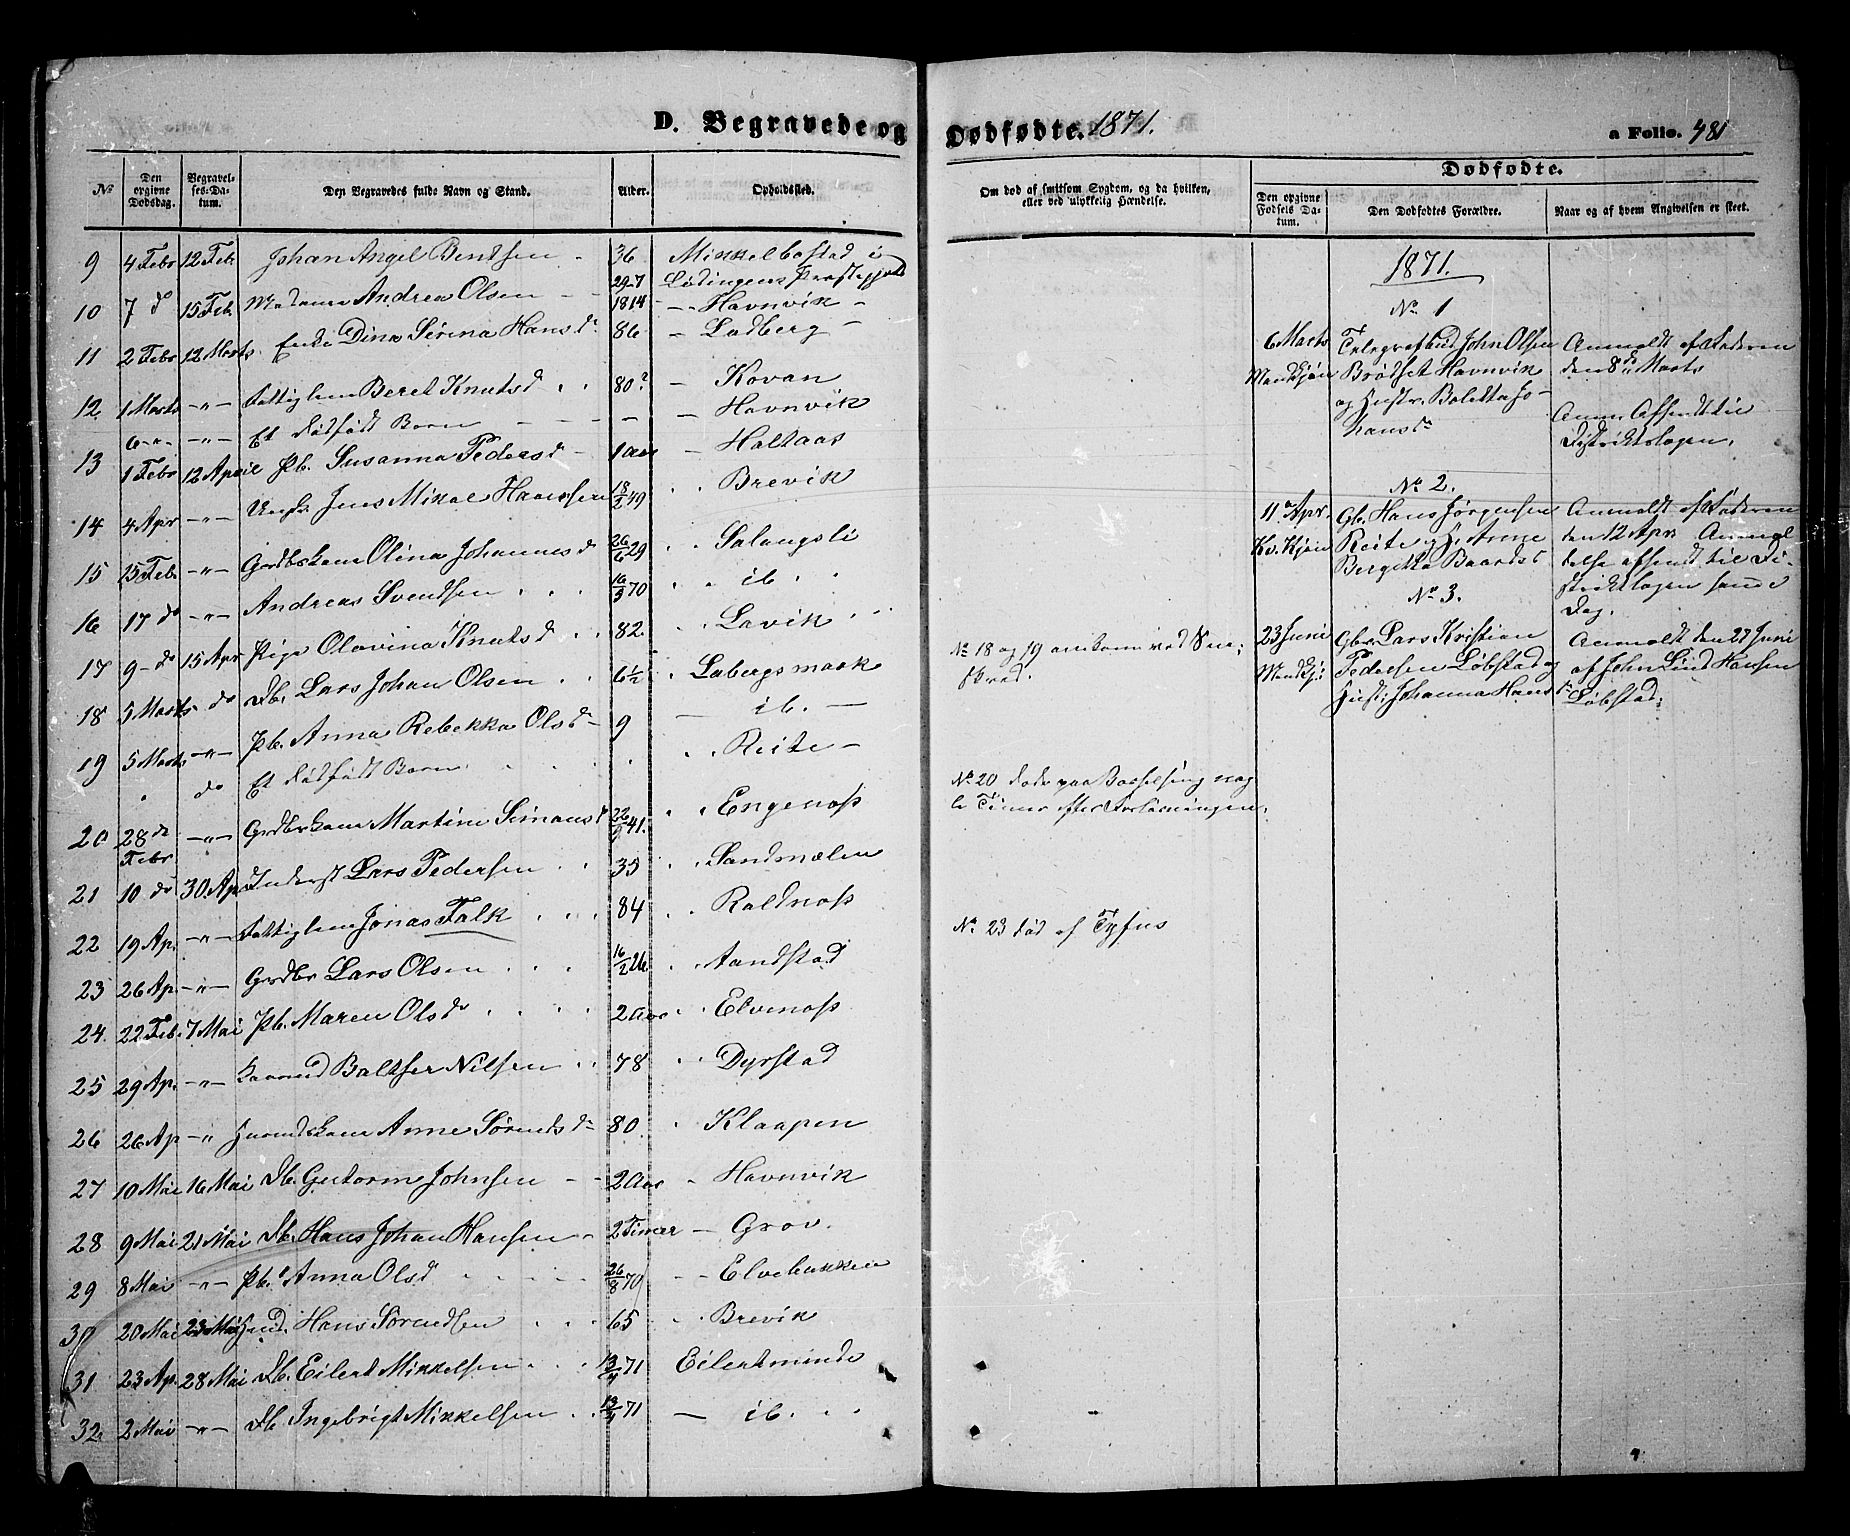 D. Begravede og Dødfødte. 1871. a Folio. 481
No
Den opgivne Dødsdag.
Begravelses-Datum.
Den Begravedes fulde Navn og Stand.
Alder.
Opholdssted.
Om død af smitsom Sygdom, og da hvilken, eller ved ulykkelig Hændelse.
Dødfødte.
Den opgivne Fødsels Datum.
Den Dødfødtes Forældre.
Naar og af hvem Angivelsen er skeet.
9 4 Febr 12 Feb. Johan Angel Bentsen - 36 Mikkelbostad i
Lødingens Præstegjeld
10 7 do 15 Feb. Madame Andrea Olsen - - 29-7 1814 - Havnvik -
11 2 Febr 12 Marts. Enke Dina Serina Hansd. 86 - Ladberg -
12 1 Marts -"- Fattiglem Beret Knutsd . . 80? - Kovan
6 -"- -"- Et dødfødt Barn - - - - - Havnvik
13 1 Febr 12 April Pb. Susanna Pedersd - 1 Aar - Haltaas
14 4 Apr -"- Ungk. Jens Mikal Hanssen 18/2 49 . . Brevik
15 15 Feb. -"- Grdbrkone Olina Johannesd 26/6 29 . . Salangsli
16 17 do -"- Andreas Svendsen . . . 16/3 70 . . ib. . .
17 9 - do 15 Apr Pige Olavina Knutsd . . 82. . Lavik
18 5 Marts do Db. Lars Johan Olsen . . 6 1/2 . Labergsmark
19 5 Marts -"- Pb. Anna Rebekka Olsd - 9 - ib. -
" do Et dødfødt Barn . . . . . Reite -
20 28 de Febr -"- Grdbrkone Martine Simonsd 22/9 41. . Engenæss
21 10 do 30 Apr Inderst Lars Pedersen . . 35 . . Sandmælen
22 19 Ap. -"- Fattiglem Jonas Falk . . . 84 . . Roldnæss
23 26 Ap. -"- Grdbr Lars Olsen . . . 16/2 26. . Aandstad
24. 22 Feb. 7 Mai Pb. Maren Olsd . . . . 2 Aar . . Elvenæss
25 29 Ap. -"- Baltser Nilsen . . 78 . . Dyrstad
26 26 Ap -" Anne Sørensd. 80. . Klaapen
27 10 Mai 16 Mai Db. Gutorm Johnsen - - 2 Aar . Havnvik
28 9 Mai 21 Mai Db. Hans Johan Hansen - 2 Timer - Grov.
29 8 Mai -"- Pb. Anna Olsd . . . . . 26/8 70 - - Elvebakken
30 20 Mai 23 Mai Hans Sørensen . . . 65 . . Brevik
31 23 Ap. 28 Mai Db. Eilert Mikkelsen . . . 13/4 71 Eilertminde
32. 2 Mai -"- Db. Ingebrigt Mikkelsen . . 13/4 71 - ib. . .
No 18 og 19 omkom ved Sne-
skred.
No 20 døde paa Barselseng nog-
le Timer efter Forløsningen.
No 23 død af Tyfus
1871.
No 1
6 Marts
Mandkjøn
Telegrafbud John Olsen
Brødset Havnvik
og Hustr. Boletta Jo-
hansd.
Anmeldt af Faderen
den 8de Marts
Anm. Afsendt til
Distriktslægen.
No 2.
11te Apr.
Kv. Kjøn
Gb. Hans Jørgensen
Reite og H. Anne
Bergitta Baardsd
Anmeldt af Faderen
den 12 Apr. Anmel-
delse afsendt til Di-
striktslægen samme
Dag.
No 3.
23 Juni
Mandkjø
Gbr. Lars Kristian
Pedersen Løbstad og
Hustr. Johanna Hansd.
Anmeldt den 27 Juni
af John Lind Hansen
Løbstad.